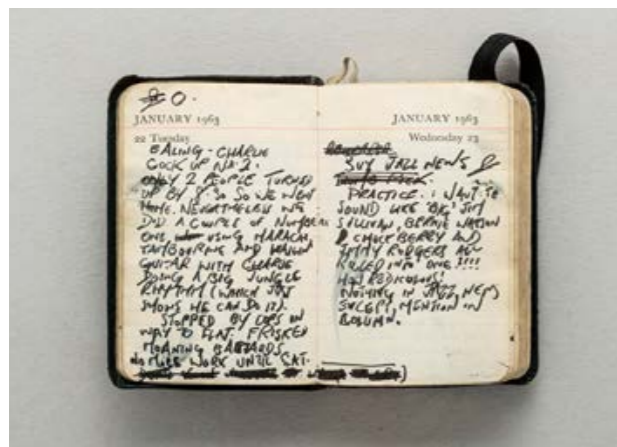 JANUARY 1963
22 Tuesday
EALING - CHARLIE
COCK UP No 2.
ONLY 2 PEOPLE TURNED
UP BY 8.50 SO WE WENT
HOME. NEVERTHELESS WE
DID A COUPLE OF NUMBERS
ONE USING MARACAS,
TAMBOURINE AND
GUITAR WITH CHARLIE
DOING A BIG JUNGLE
RHYTHM (WHICH JUST
SHOWS HE CAN DO IT).
STOPPED BY COPS ON
WAY TO FLAT. FRISKED
MOANING BASTARDS.
NO MORE WORK UNTIL SAT.
JANUARY 1963
Wednesday 23
BUY JAZZ NEWS
PRACTICE. I WANT TO
SOUND LIKE JIM
SULLIVAN, BERNIE WATSON
CHUCK BERRY AND
JIMMY RODGERS ALL
ROLLED INTO ONE !!!!
NOTHING IN JAZZ NEWS
EXCEPT MENTION IN